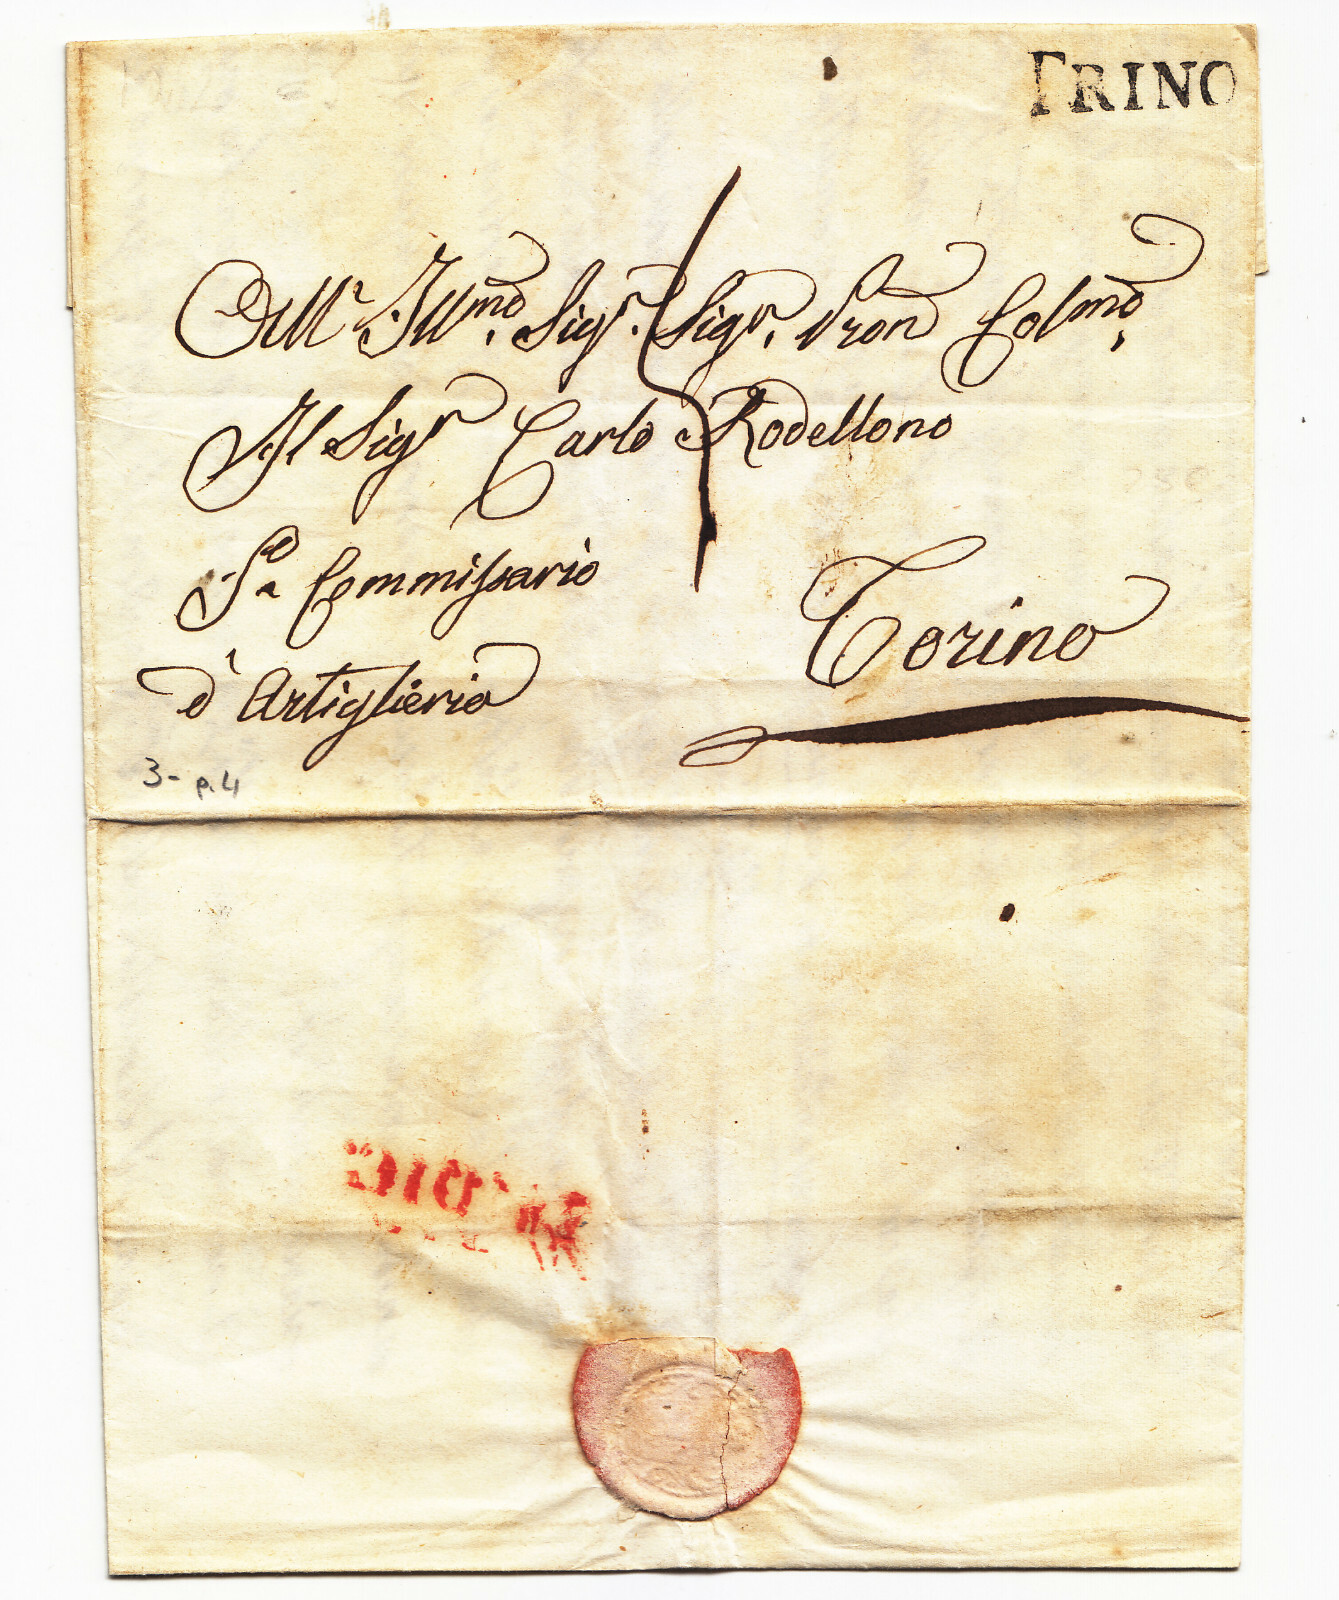 TRINO
All' Illmo. Sigr. Sigr. Pron Colmo.
Il Sigr Carlo Rodellono
Commissario
d'Artiglieria
Torino
3- p.4